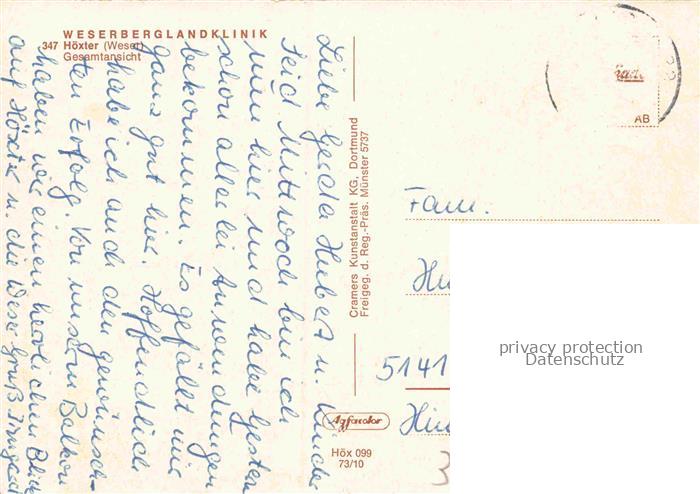 WESERBERGLANDKLINIK
347 Höxter (Weser)
Gesamtansicht
Liebe Gerda Hubert u. Kinder
Seid Mittwoch bin ich
nun hier und habe gestern
schon allerlei Anwendungen
bekommen. Es gefällt mir
ganz gut hier. Hoffendlich
habe ich auch den gewünsch-
ten Erfolg. Von unserm Balkon
haben wir einen herrlichen Blick
auf Höxter u. die Weser Gruß
Cramers Kunstanstalt KG, Dortmund
Freigeg. d. Reg.-Präs. Münster 5737
Agfacolor
Höx 099
73/10
AB
Fam.
Hu
5141
Hin
3
privacy protection
Datenschutz